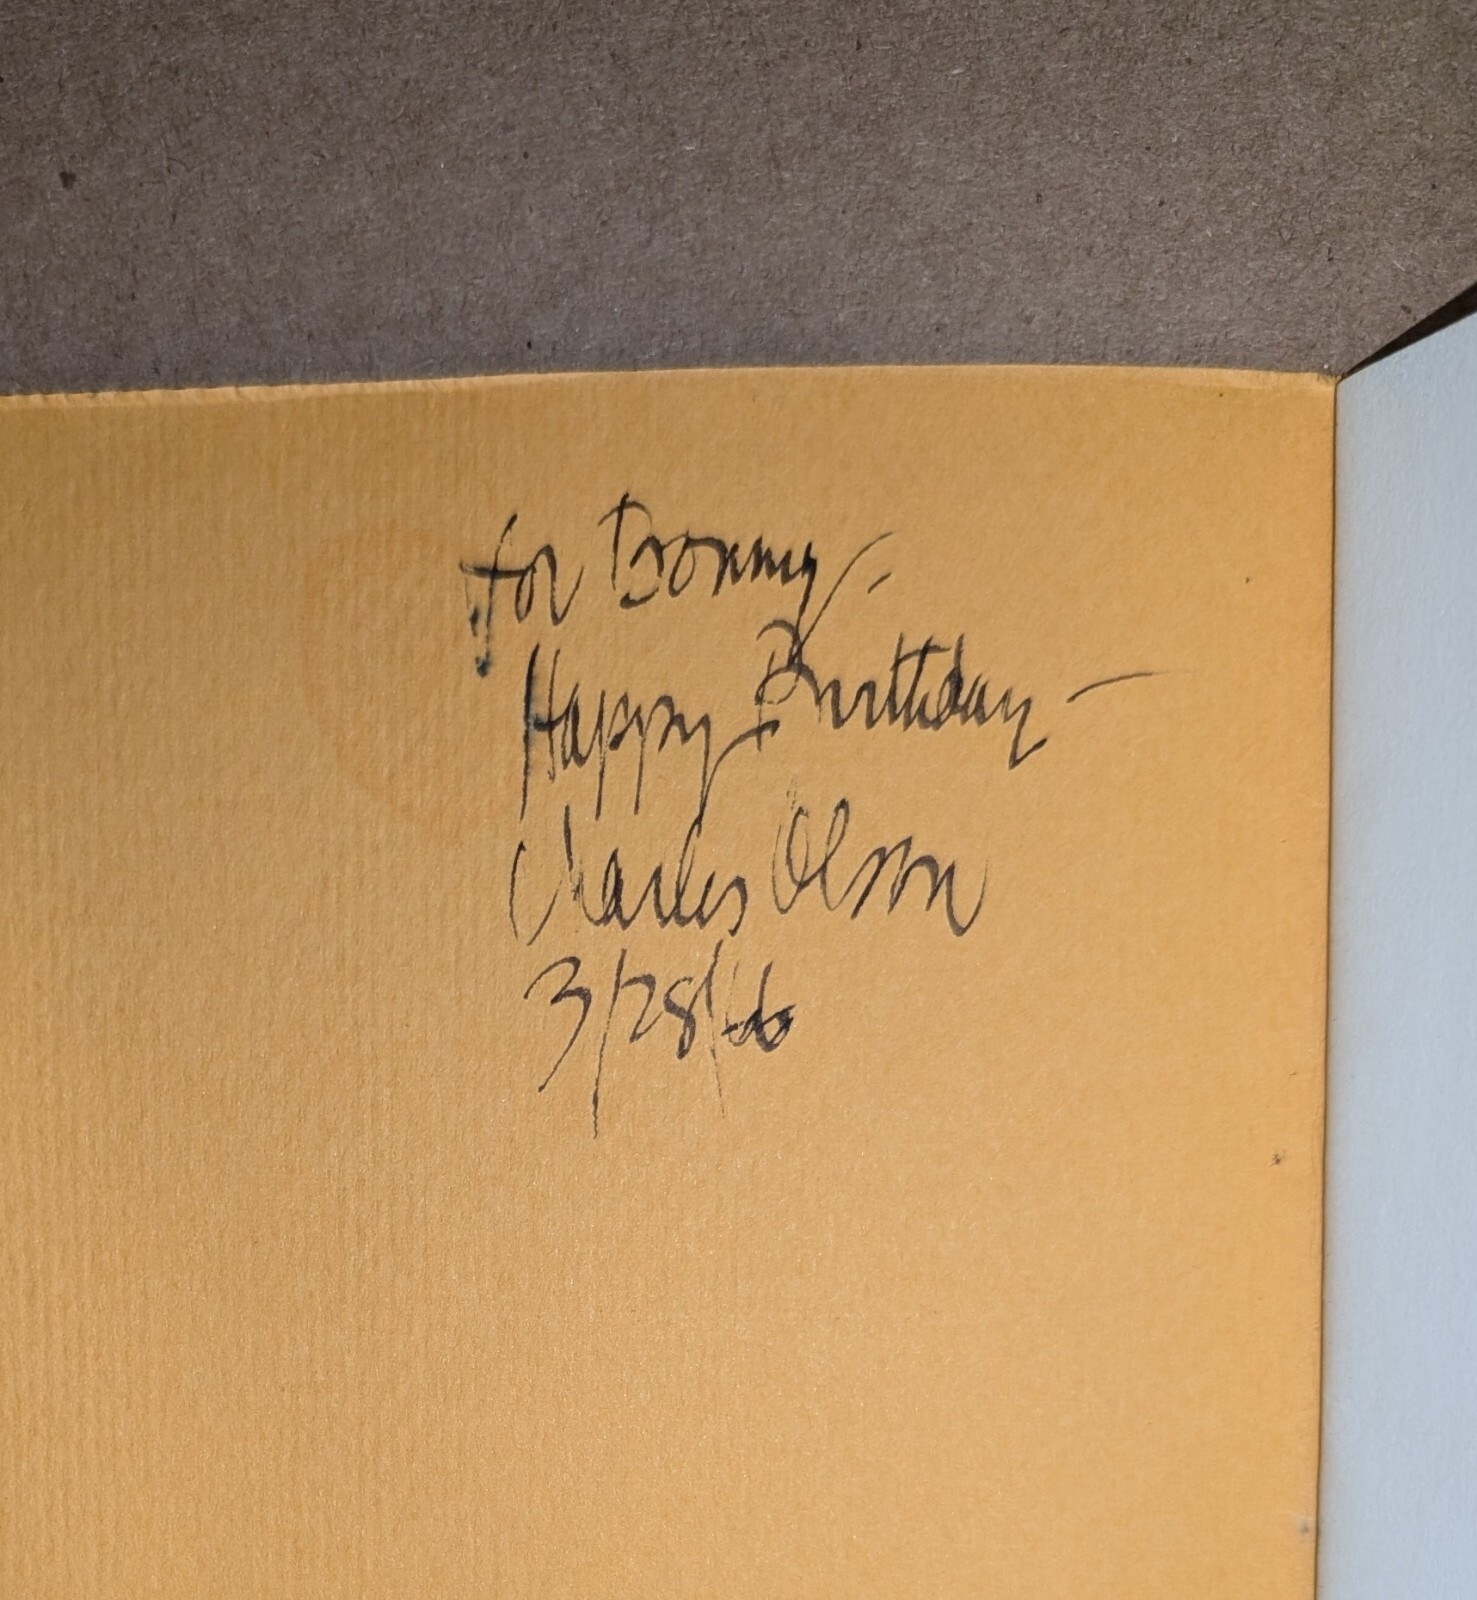 for Bonny —
Happy Birthday —
Charles Olson
3/28/66